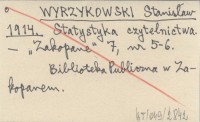 WYRZYKOWSKI Stanisław
1914. Statystyka czytelnictwa
— „Zakopane" 7, nr 5-6.
Biblioteka Publiczna w Za-
kopanem.